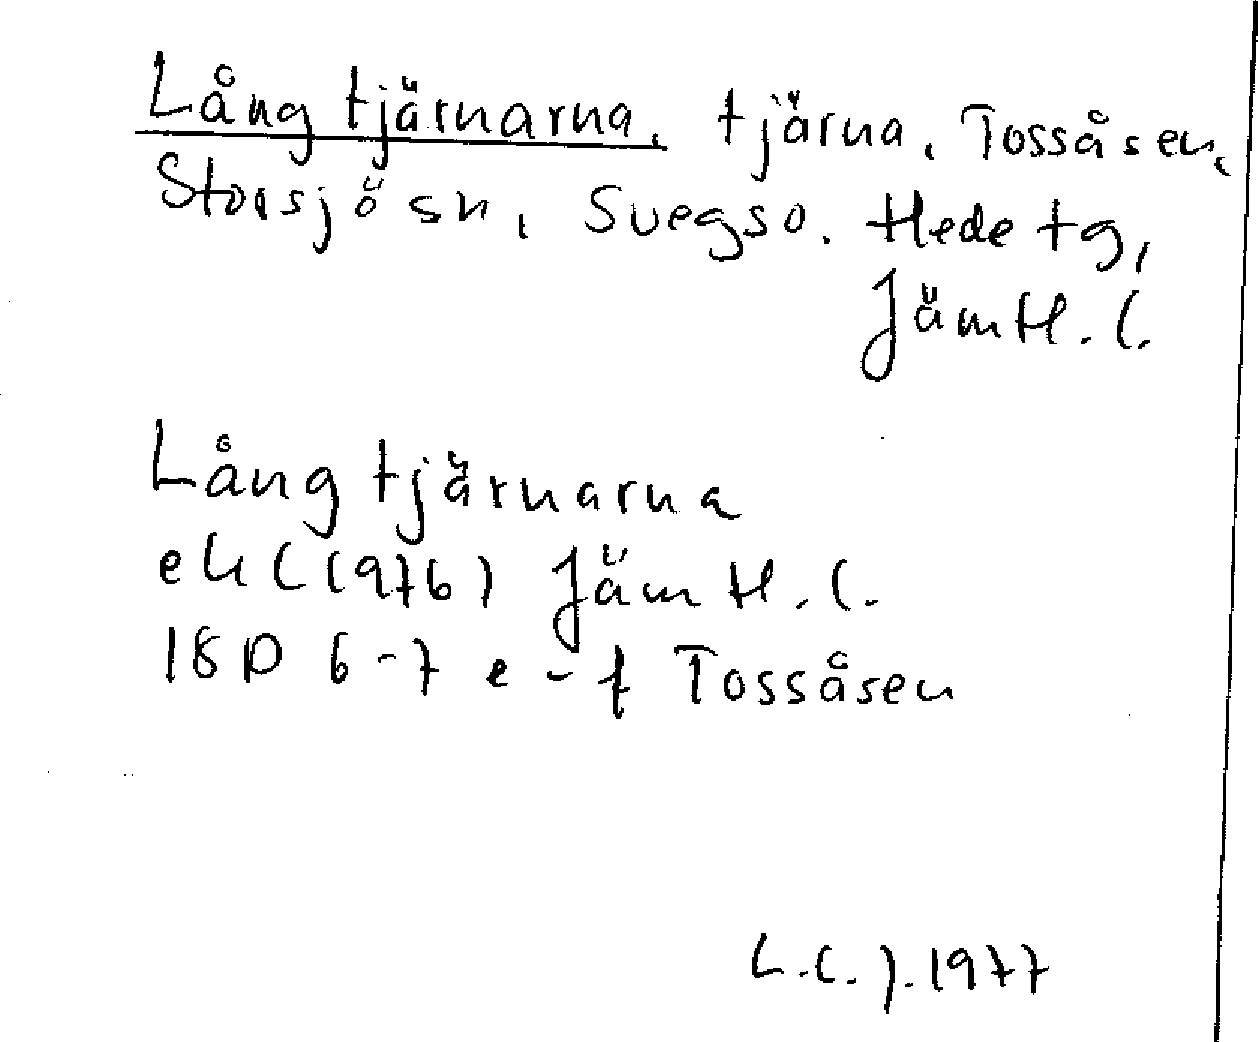 Långtjärnarna, tjärna, Tossåsen,
Storsjö sn, Svegs o. Hede tg,
Jämtl. l.
Långtjärnarna
ek (1976) Jämtl. l.
18D 6-7 e-f Tossåsen
L.C. J. 1977